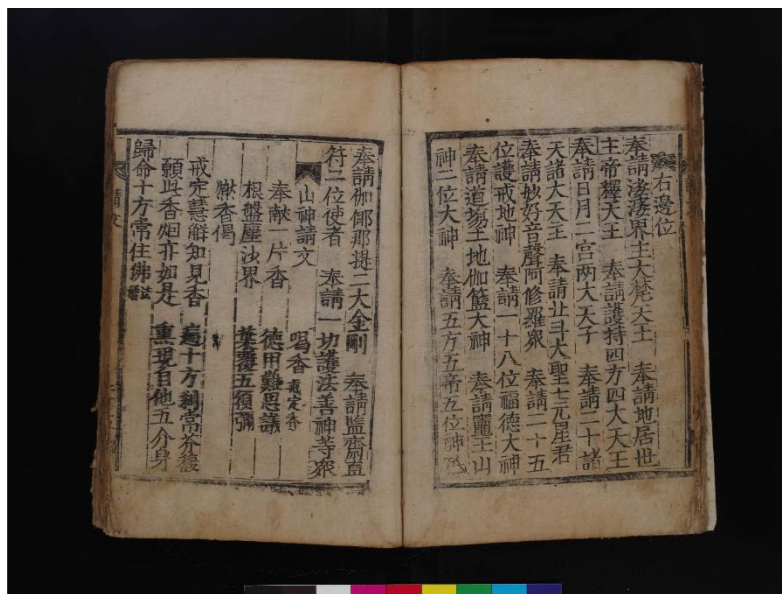 右邊位
奉請娑婆界主大梵天王 奉請地居世
主帝釋天王 奉請護持四方四大天王
奉請日月二宮兩大天子 奉請二十諸
天諸大天王 奉請北斗大聖七元星君
奉請妙好音聲阿修羅衆 奉請二十五
位護戒地神 奉請一十八位福德大神
奉請道場土地伽籃大神 奉請竈王山
神二位大神 奉請五方五帝五位神祇
奉請伽倻那提二大金剛 奉請監齋直
符二位使者 奉請一切護法善神等衆
山神請文 喝香
奉獻一片香 德用難思議
根盤塵沙界 葉覆五須彌
獻香偈
戒定慧解知見香 遍十方刹常芬馥
願此香烟亦如是 熏現自他五分身
歸命十方常住佛
請文